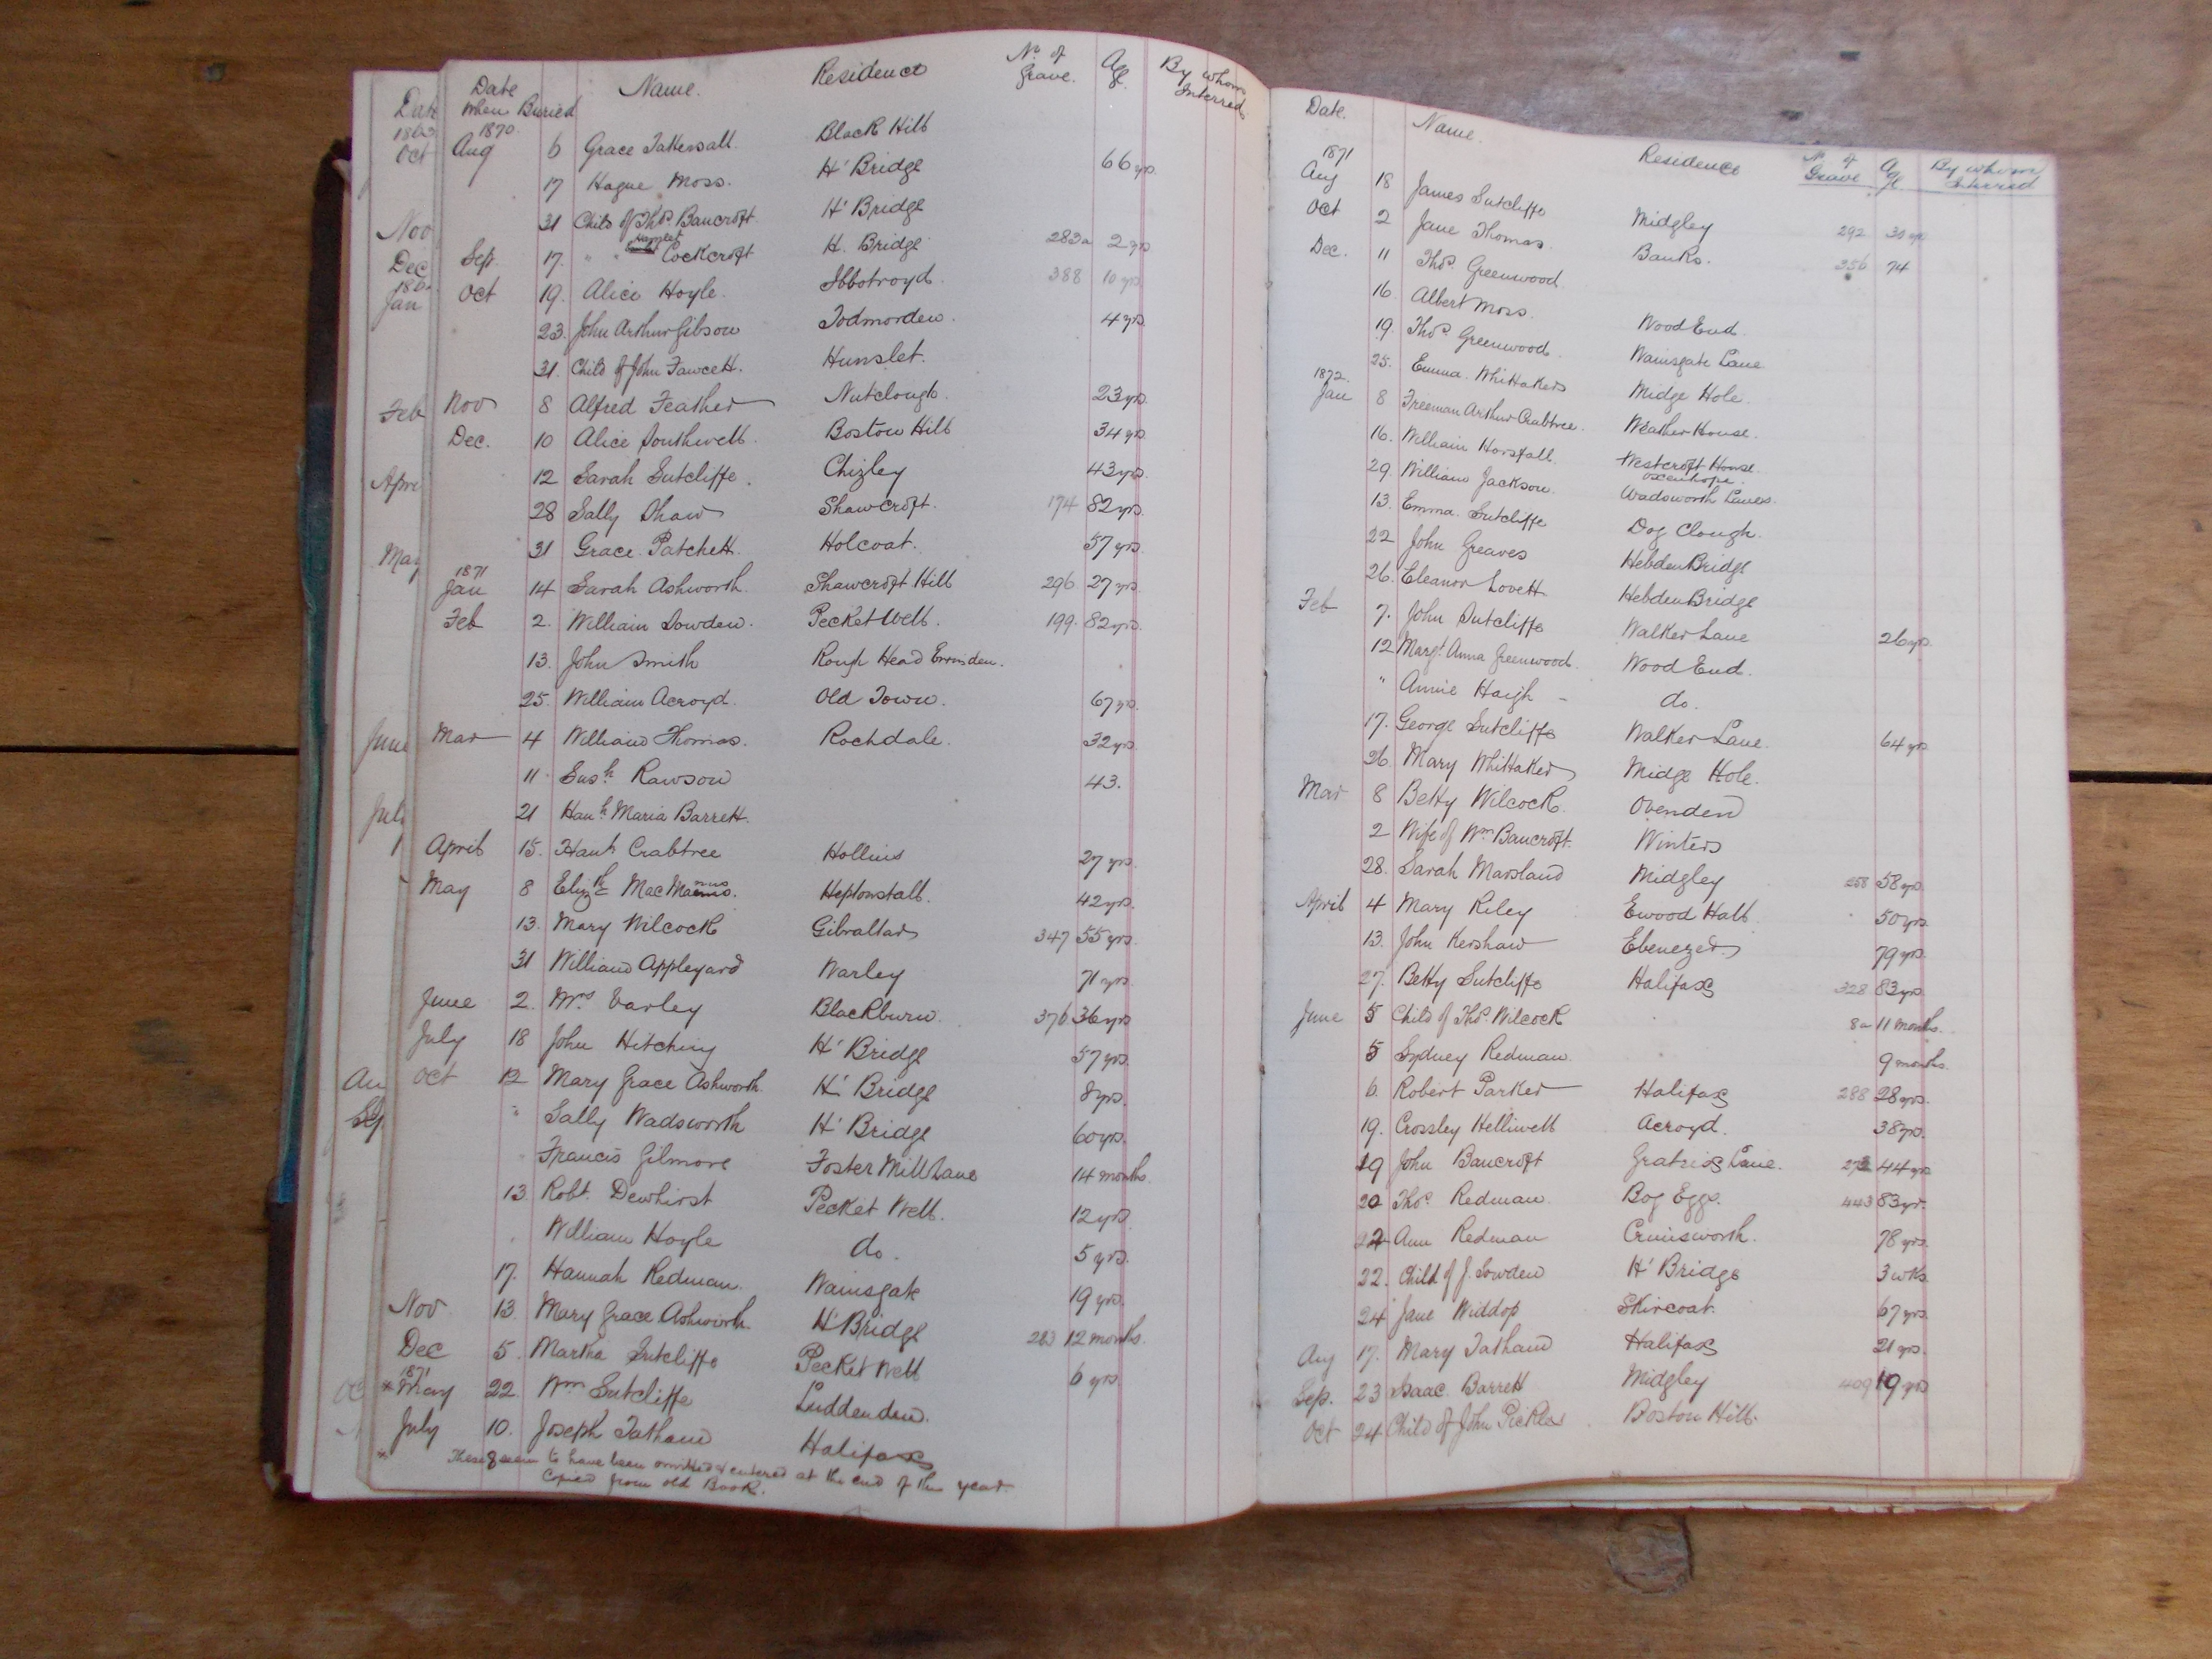 Date when Buried Name. Residence No of Grave. Age By whom Interred.
1870.
Aug 6 Grace Tattersall. Black Hill
17 Hague Moss. H' Bridge 66 yrs.
31 Child of Thos Bancroft. H' Bridge
Sep. 17. " " Cockcroft H. Bridge 283a 2 yrs
Oct 19. Alice Hoyle. Ibbotroyd. 388 10 yrs
23. John Arthur Gibson Todmorden. 4 yrs
31. Child of John Fawcett. Hunslet.
Nov 8 Alfred Feather Nutclough. 23 yrs
Dec. 10 Alice Southwell. Boston Hill 34 yrs
12 Sarah Sutcliffe. Chizley 43 yrs.
28 Sally Shaw Shawcroft. 174 82 yrs.
31 Grace Patchett. Holcoat. 57 yrs.
1871
Jan 14 Sarah Ashworth. Shawcroft Hill 296 27 yrs
Feb 2. William Sowden. Pecket Well. 199. 82 yrs.
13. John Smith Rough Head
25. William Acroyd. Old Town. 67 yrs.
Mar 4 William Thomas. Rochdale. 32 yrs.
11. Sush Rawson 43.
21 Hanh Maria Barrett.
April 15. Hanh Crabtree Hollins 27 yrs.
May 8 Elizth Heptonstall. 42 yrs.
13. Mary Wilcock Gibraltar 347 55 yrs.
31 William Appleyard Warley 71 yrs.
June 2. Mrs Varley Blackburn. 376 36 yrs
July 18 John Hitching H' Bridge 57 yrs.
Oct 12 Mary Grace Ashworth. H' Bridge 8 yrs.
" Sally Wadsworth H' Bridge 60 yrs.
" Francis Gilmore Foster Mill Lane 14 months.
13. Robt. Dewhirst Pecket Well. 12 yrs
" William Hoyle do. 5 yrs.
17. Hannah Redman. Wainsgate 19 yrs.
Nov 13. Mary Grace Ashworth. H' Bridge 283 12 months.
Dec 5. Martha Sutcliffe Pecket Well 6 yrs
1871
* May 22. Wm Sutcliffe Luddenden.
July 10. Joseph Tatham Halifax
* These 8 seem to have been omitted & entered at the end of the year.
Copied from old Book.
Date. Name. Residence No of Grave Age By whom Interred
1871
Aug 18 James Sutcliffe Midgley 292 30 yrs
Oct 2 Jane Thomas. Banks. 356 74
Dec. 11 Thos. Greenwood.
16. Albert Moss. Wood End.
19. Thos. Greenwood. Wainsgate Lane
25. Emma Whittaker Midge Hole.
1872.
Jan 8 Freeman Arthur Crabtree. Weather House.
16. William Horsfall. Westcroft House. Oxenhope.
29. William Jackson. Wadsworth Lanes.
13. Emma Sutcliffe Dog Clough.
22 John Greaves Hebden Bridge
26. Eleanor Lovett Hebden Bridge
Feb 7. John Sutcliffe Walker Lane 26 yrs.
12 Margt. Anna Greenwood. Wood End.
" Annie Haigh do.
17. George Sutcliffe Walker Lane. 64 yrs
26. Mary Whittaker Midge Hole.
Mar 8 Betty Wilcock. Ovenden
2 Wife of Wm Bancroft. Winters
28. Sarah Marsland Midgley 258 58 yrs.
April 4 Mary Riley Ewood Hall. 50 yrs.
13. John Kershaw Ebenezer 79 yrs.
27. Betty Sutcliffe Halifax 328 83 yrs.
June 5 Child of Thos. Wilcock 8a 11 months.
5 Sydney Redman. 9 months.
6. Robert Parker Halifax 288 28 yrs.
19. Crossley Helliwell Acroyd. 38 yrs.
19 John Bancroft Lane. 44 yrs
20 Thos. Redman. Bog Eggs. 443 83 yrs.
Ann Redman Crimsworth. 78 yrs.
22. Child of J. Sowden H' Bridge 3 wks.
24 Jane Widdop Skircoat. 67 yrs.
Aug 17. Mary Tatham Halifax 21 yrs.
Sep. 23 Isaac Barrett Midgley 409 19 yrs
Oct 24 Child of John Pickles Boston Hill.